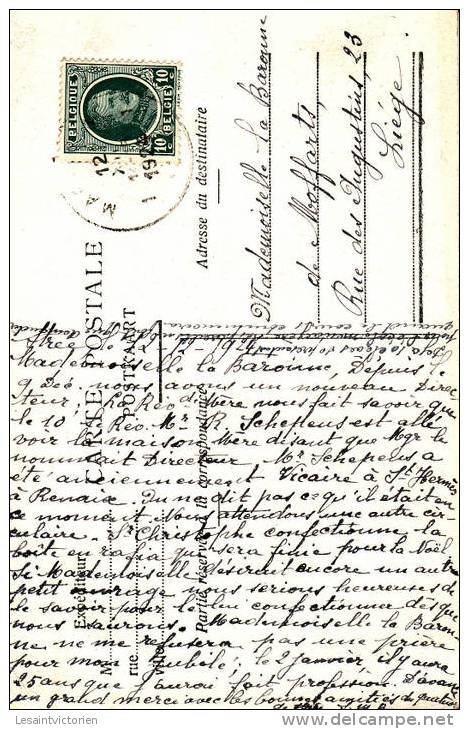 BELGIQUE BELGIË
10 c 10 c
CARTE POSTALE
POSTKAART
Adresse du destinataire
Mademoiselle la Baronne
de Moffarts,
Rue des Augustins, 23
Liège.
Expéditeur
M
rue
ville
Partie réservée à la correspondance
Mademoiselle la Baronne, Depuis le
9 Déc. nous avons un nouveau Direc
teur; la Rév. Mère nous fait savoir que
le 10, Rév. Mr R. Schepens est allé
voir la maison Mère disant que Mgr le
nommait Directeur. Mr Schepens a
été anciennement Vicaire à St Hermès
à Renaix. On ne dit pas ce qu'il était en
ce moment. Nous attendons une autre cir-
culaire. Sr Christophe confectionne la
boîte en rafia qui sera finie pour la Noël
Si Mademoiselle désirait encore un autre
petit ouvrage nous serions heureuses de
le savoir pour le lui confectionner dès que
nous saurons. Mademoiselle la Baron-
ne ne me refusera pas une prière
pour mon jubilé; le 2 janvier il y aura
25 ans que j'aurai fait profession. D'avance
un grand merci avec les bonnes amitiés de
Lesaintvictorien
delcampe.net